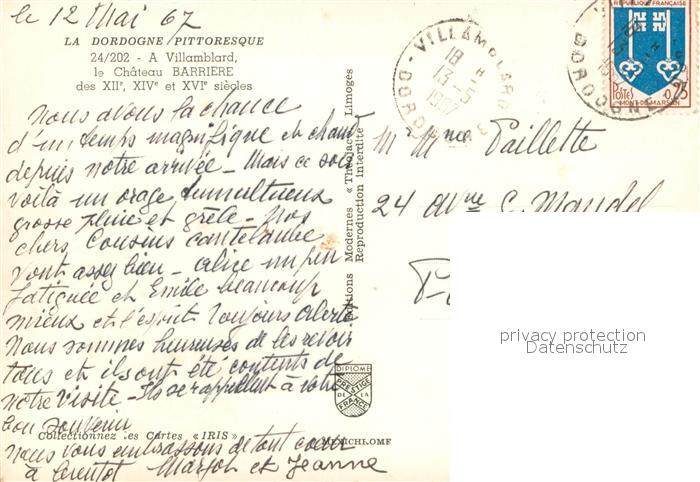 le 12 Mai 67
LA DORDOGNE PITTORESQUE
24/202 - A Villamblard,
le Château BARRIERE
des XIIe, XIVe et XVIe siècles
Nous avons la chance
d'un temps magnifique et chaud
depuis notre arrivée - Mais ce soir
voilà un orage tumultueux
grosse pluie et grêle - Nos
chers Cousins Cantelaube
vont assez bien - Alice un peu
fatiguée et Emile beaucoup
mieux et l'esprit toujours alerte
Nous sommes heureuses de les revoir
tous et ils ont été contents de
notre visite - Ils se rappellent à votre
bon souvenir
Collectionnez les Cartes «IRIS»
Nous vous embrassons de tout coeur
à bientôt Marjon et Jeanne
Editions Modernes « Théojac » Limoges
Reproduction Interdite
DIPLOME
PRESTIGE
DE LA
FRANCE
MEXICHROME
VILLAMBLARD
18 H
13-5
1967
DORDOGNE
REPUBLIQUE FRANÇAISE
POSTES
0,25
MONT-DE-MARSAN
DORDOGNE
Mr Mme Paillette
24 Avnue C. Mandel
privacy protection
Datenschutz